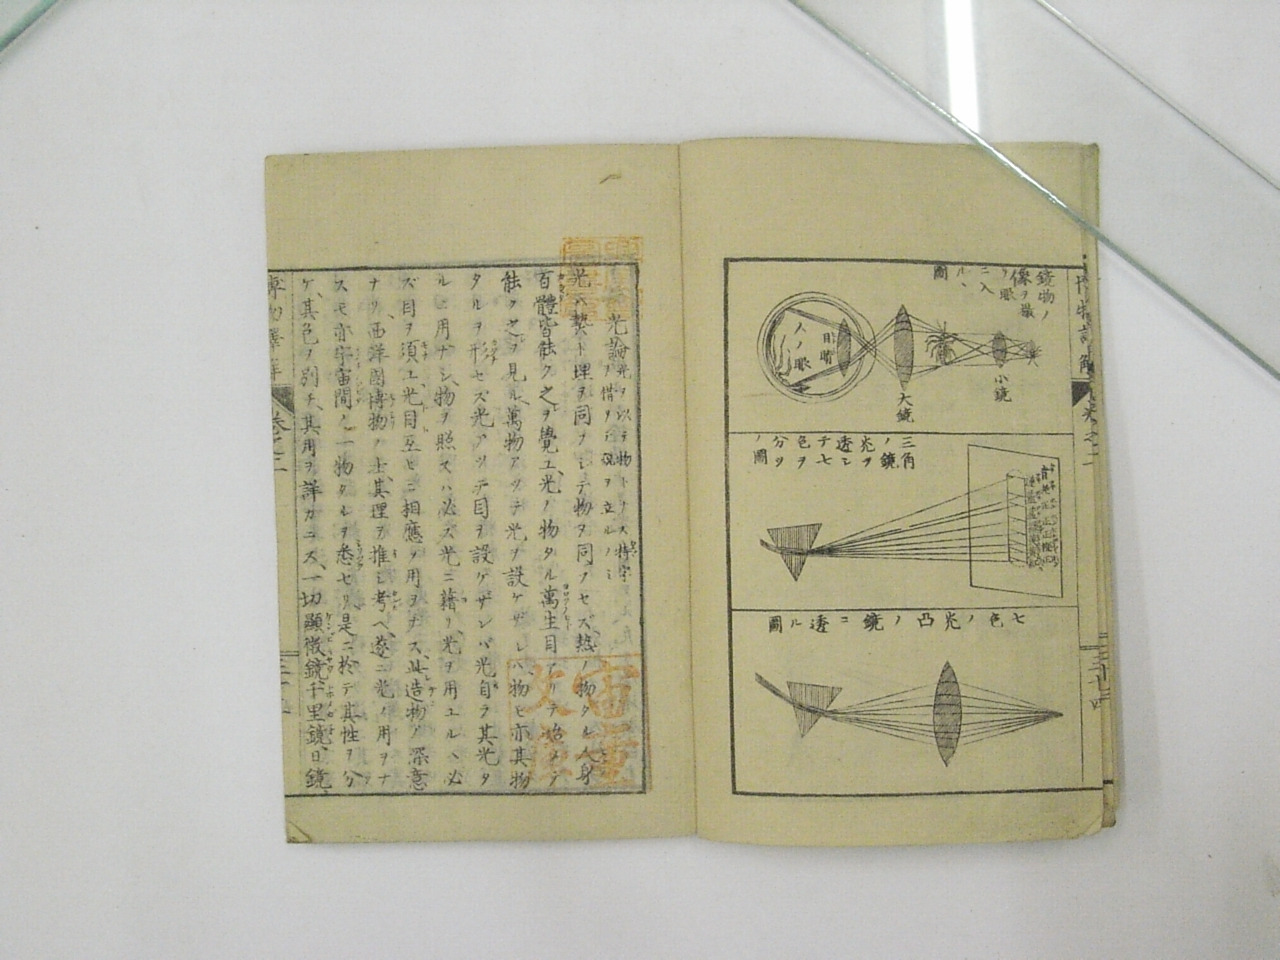 鏡物ノ
像ヲ撮
リ眼
ニ入
ルヽ
圖
小鏡
大鏡
目睛
人ノ眼
三角
ノ鏡
光ヲ
透シ
テ七
色ヲ
分ツ
ノ圖
七色ノ光凸ノ鏡ニ透ル圖
光論
光ヲ以テ物トナス特字
ヲ借リテ説ヲ立ルノミ
光ハ熱ト理ヲ同フシテ物ヲ同フセズ、熱ノ物タル人身
百體皆能ク之ヲ覺ユ、光ノ物タル萬生目アリテ始メテ
能ク之ヲ見ル、萬物アツテ光ヲ設ケザレハ、物モ亦其物
タルヲ形セズ光アツテ目ヲ設ケザレバ光自ラ其光タ
ルニ用ナシ、物ヲ照スハ必ズ光ニ藉リ、光ヲ用ユルハ必
ズ目ヲ須ユ、光目互ヒニ相應シ用ヲナス、此造物ノ深意
ナリ、西洋國博物ノ士、其理ヲ推シ考ヘ、遂ニ光ノ用ヲナ
スモ亦宇宙間ノ一物タルヲ悉セリ、是ニ於テ其性ヲ分
ケ、其色ヲ別チ、其用ヲ詳カニス、一切顯微鏡、千里鏡、日鏡、
卷之二